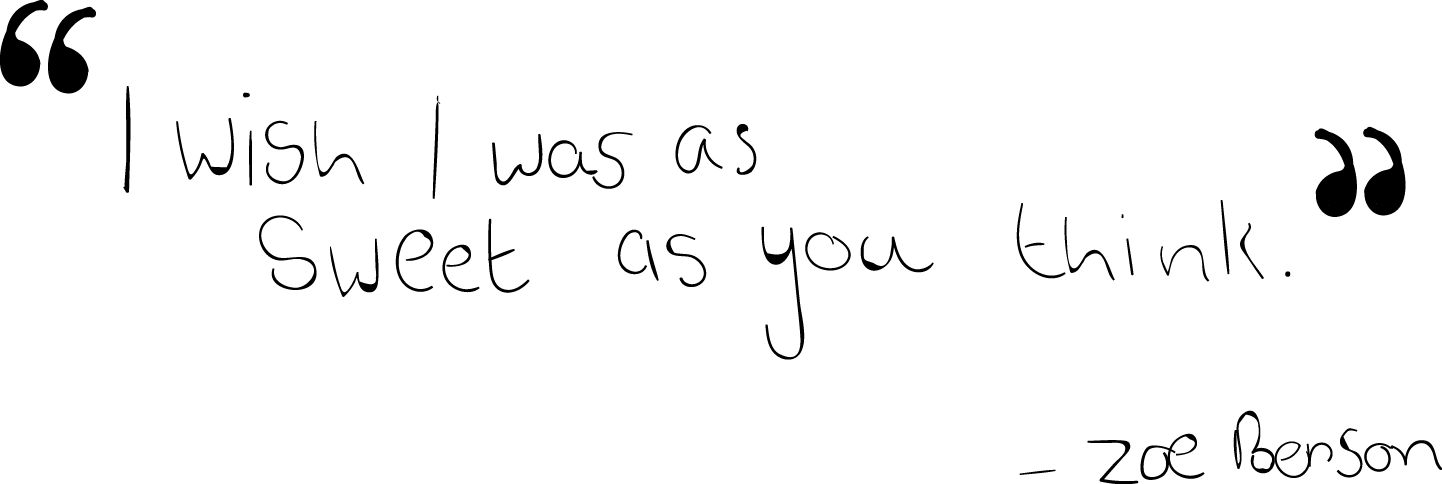 “I wish I was as
sweet as you think.”
- Zoe Benson